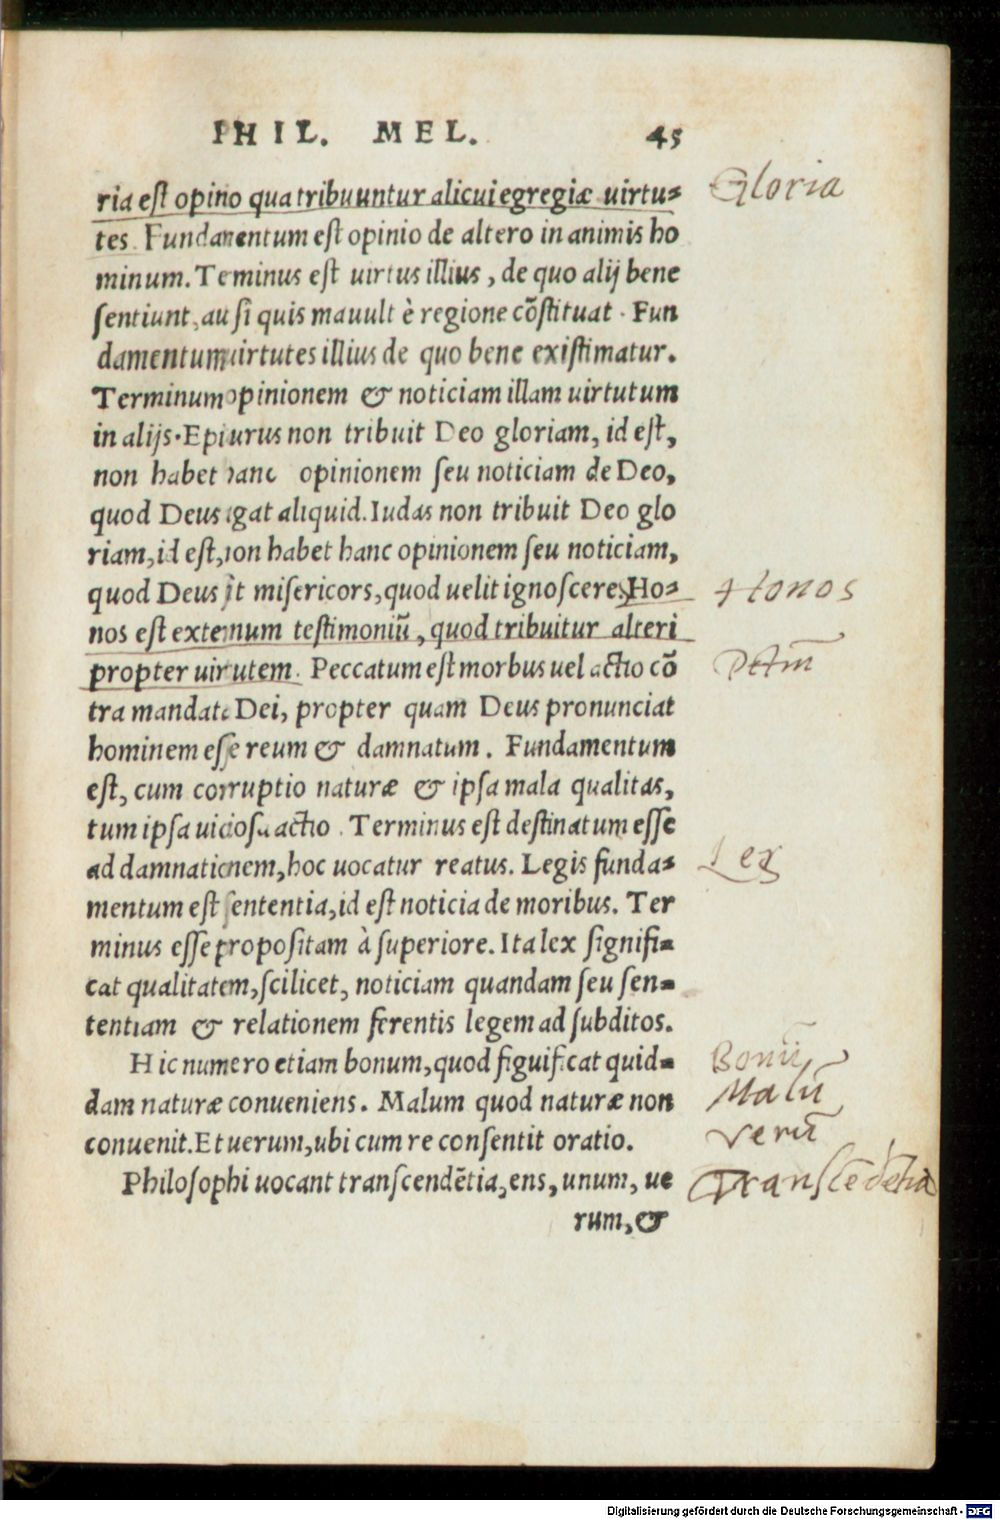 PHIL. MEL. 45
ria est opinio qua tribuuntur alicui egregiæ uirtu-
tes. Fundamentum est opinio de altero in animis ho
minum. Teminus est uirtus illius, de quo alij bene
sentiunt, au si quis mauult è regione cõstituat. Fun
damentum uirtutes illius de quo bene existimatur.
Terminum opinionem & noticiam illam uirtutum
in alijs. Epicurus non tribuit Deo gloriam, id est,
non habet hanc opinionem seu noticiam de Deo,
quod Deus agat aliquid. Iudas non tribuit Deo glo
riam, id est, non habet hanc opinionem seu noticiam,
quod Deus sit misericors, quod uelit ignoscere. Ho-
nos est externum testimoniũ, quod tribuitur alteri
propter uirtutem. Peccatum est morbus uel actio cõ
tra mandata Dei, propter quam Deus pronunciat
hominem esse reum & damnatum. Fundamentum
est, cum corruptio naturæ & ipsa mala qualitas,
tum ipsa uiciosa actio. Terminus est destinatum esse
ad damnationem, hoc uocatur reatus. Legis funda-
mentum est sententia, id est noticia de moribus. Ter
minus esse propositam à superiore. Ita lex signifi-
cat qualitatem, scilicet, noticiam quandam seu sen-
tentiam & relationem ferentis legem ad subditos.
Hic numero etiam bonum, quod siguificat quid-
dam naturæ conueniens. Malum quod naturæ non
conuenit. Et uerum, ubi cum re consentit oratio.
Philosophi uocant transcendẽtia, ens, unum, ue
rum, &
Gloria
Honos
Lex
Bonũ
Malũ
Verũ
Transcẽdẽtia
Digitalisierung gefördert durch die Deutsche Forschungsgemeinschaft - DFG